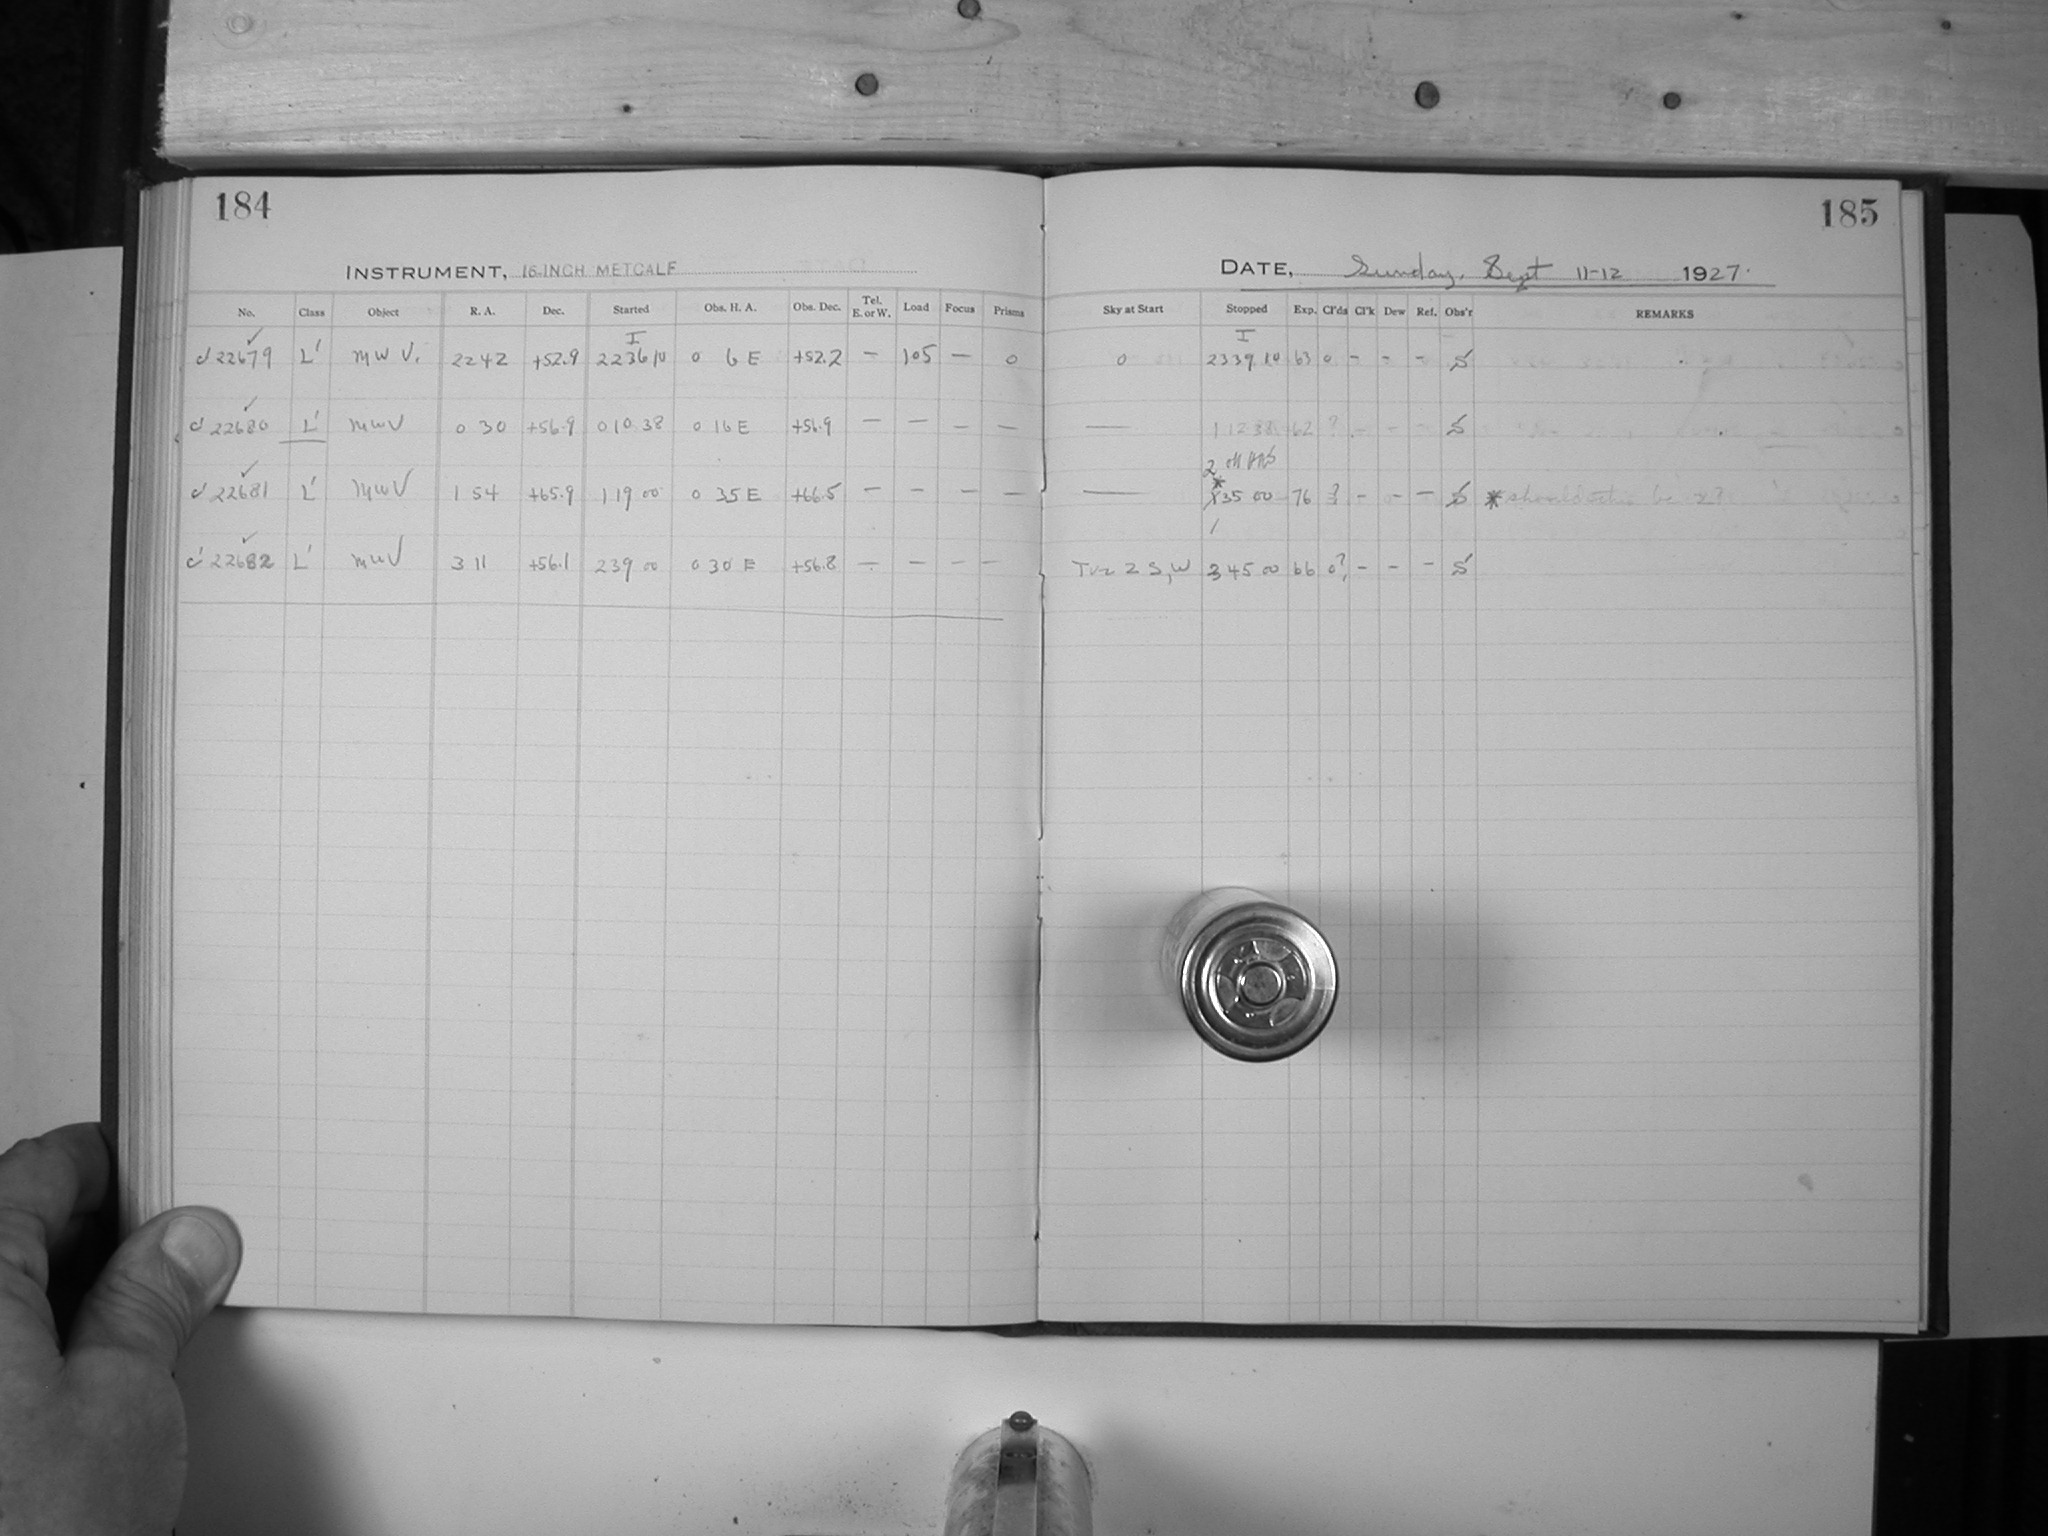 184
INSTRUMENT, 16-INCH METCALF
No. Class Object R. A. Dec. Started Obs. H. A. Obs. Dec. Tel. E. or W. Load Focus Prisms
I
22679 L' MWV. 22 42 +52.9 22 36 10 0 6 E +52.2 — 105 — 0
22680 L' MWV 0 30 +56.9 0 10 38 0 16 E +56.9 — — — —
22681 L' MWV 1 54 +65.9 1 19 00 0 35 E +66.5 — — — —
22682 L' MWV 3 11 +56.1 2 39 00 0 30 E +56.8 — — — —
185
DATE, Sunday, Sept 11-12 1927.
Sky at Start Stopped Exp. Cl'ds Cl'k Dew Ref. Obs'r REMARKS
I
0 23 39 10 63 0 - - - S
— 1 12 38 62 ? - - - S
2
*
— 35 00 76 ? - - - S * should this be 2?
1
2 S, W 3 45 00 66 0?, - - - S